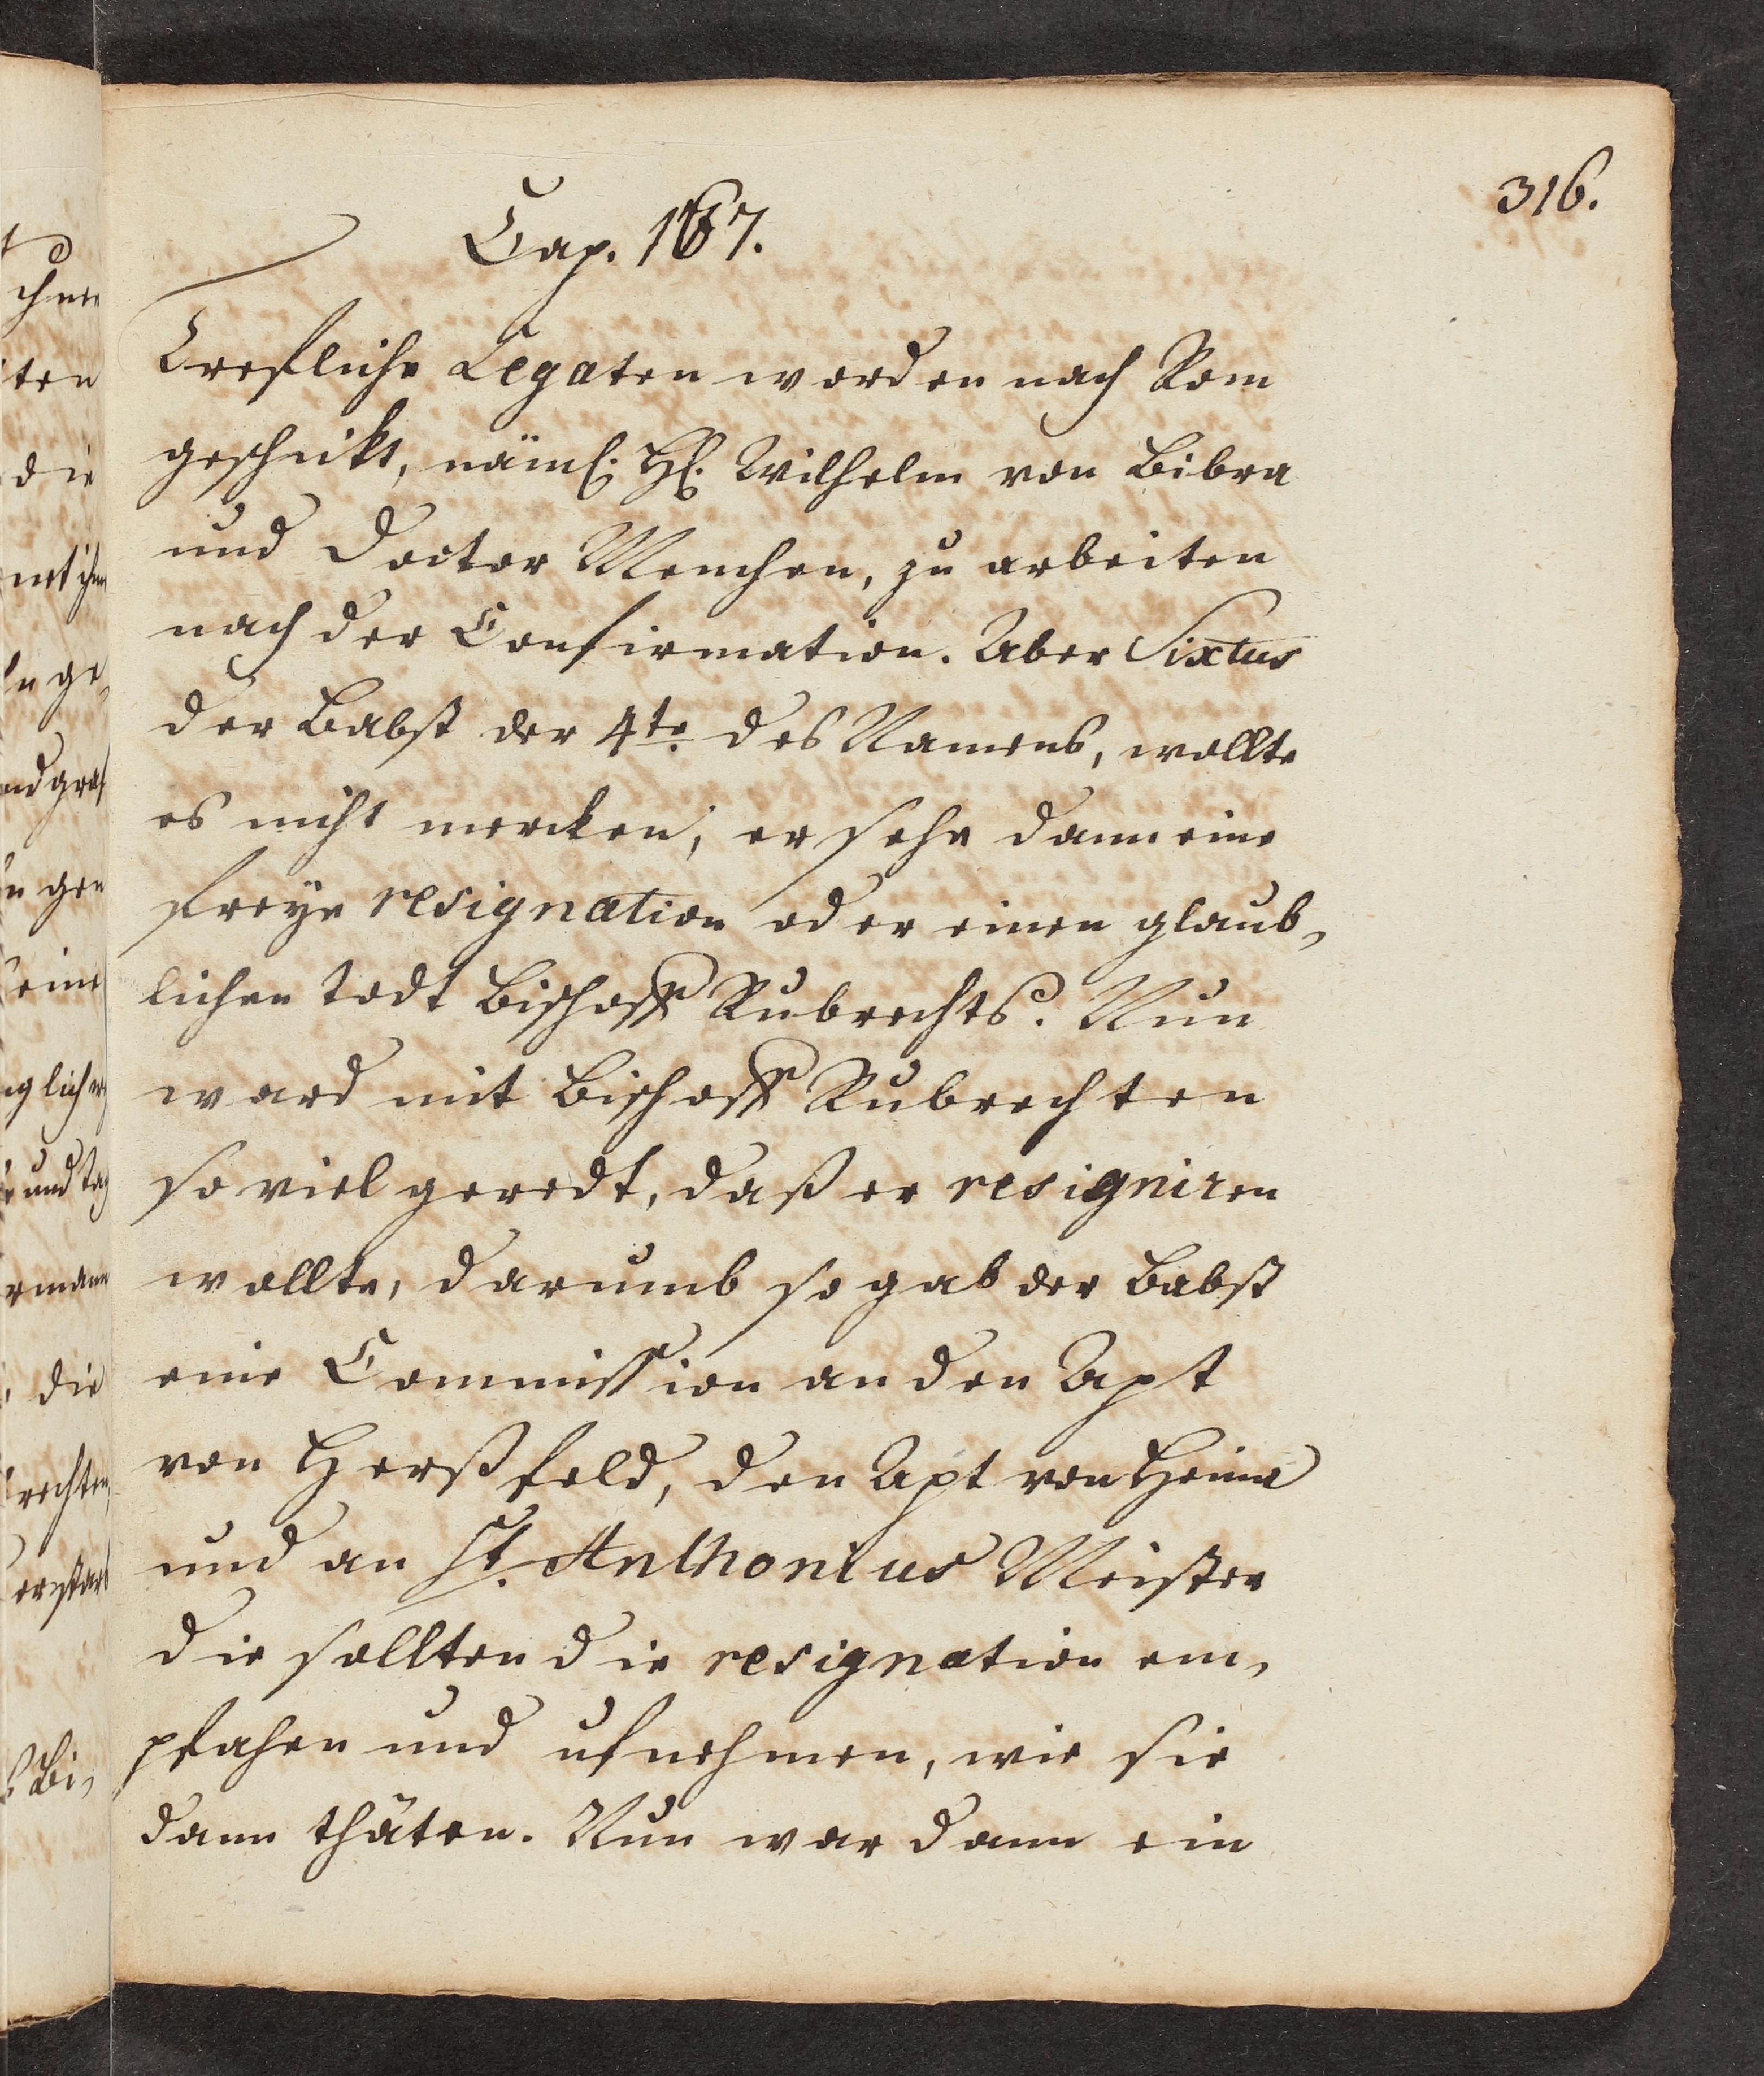 316.
Cap. 167.
Trefliche Legaten worden nach Rom
geschickt, näml. H. Wilhelm von Bibra
und Doctor Menchen, zu arbeiten
nach der Confirmation. Aber Sixtus
der Babst der 4te. des Namens, wollte
es nicht mercken, er sehe dann eine
freÿe resignation oder einen glaub,
lichen todt Bischoff Rubrechts. Nun
ward mit Bischoff Rubrechten
so viel geredt, daß er resigniren
wollte, darumb so gab der Babst
eine Commission an den Apt
von Herßfeld, den Apt von Heina
und an St. Anthonius Meister
die sollten die resignation em,
pfahen und ufnehmen, wie sie
dann thäten. Nun war dann ein